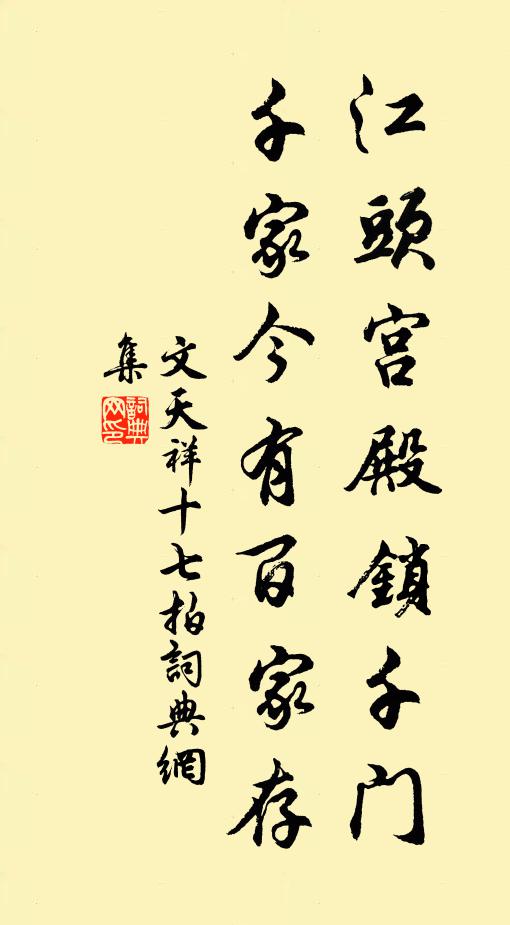 江頭宮殿鎖千门
千家今有百家存
文天祥十七拍詞典網
集
詞典
网印